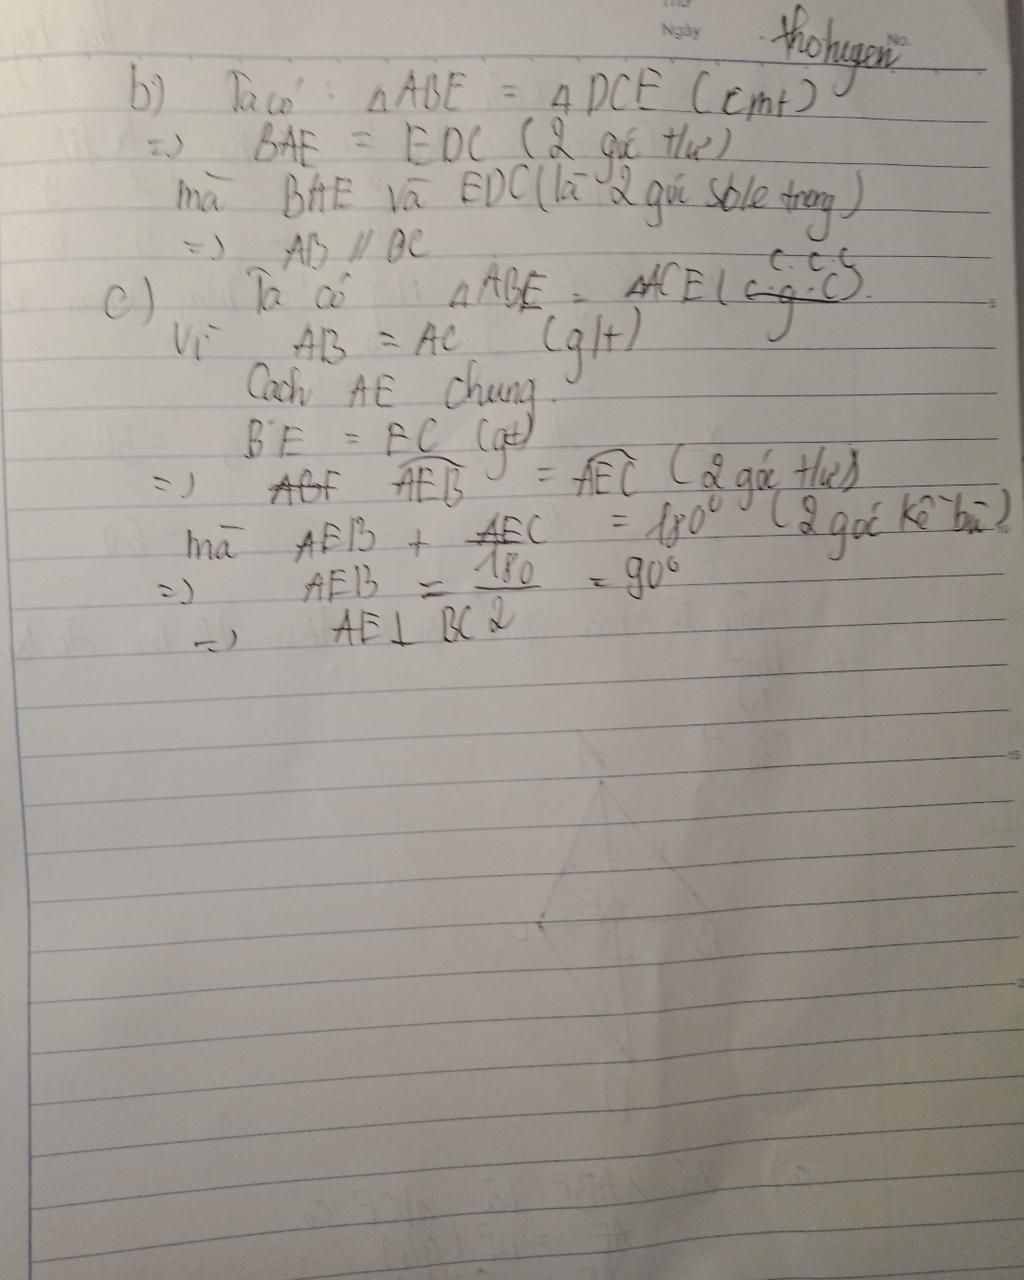 Ngày
No.
thohuyen
b) Ta có : Δ ABE = Δ DCE (cmt)
=> BAE = EDC (2 góc tư)
mà BAE và EDC (là 2 góc sole trong)
=> AB // DC
c) Ta có : Δ ABE = ΔACE ( c.g.c ) c.c.c
Vì AB = AC (g/t)
Cạch AE chung.
BE = EC (gt)
=> ABE AEB = AEC (2 góc tư)
mà AEB + AEC = 180° (2 góc kề bù)
=> AEB = 180/2 = 90°
=> AE ⊥ BC